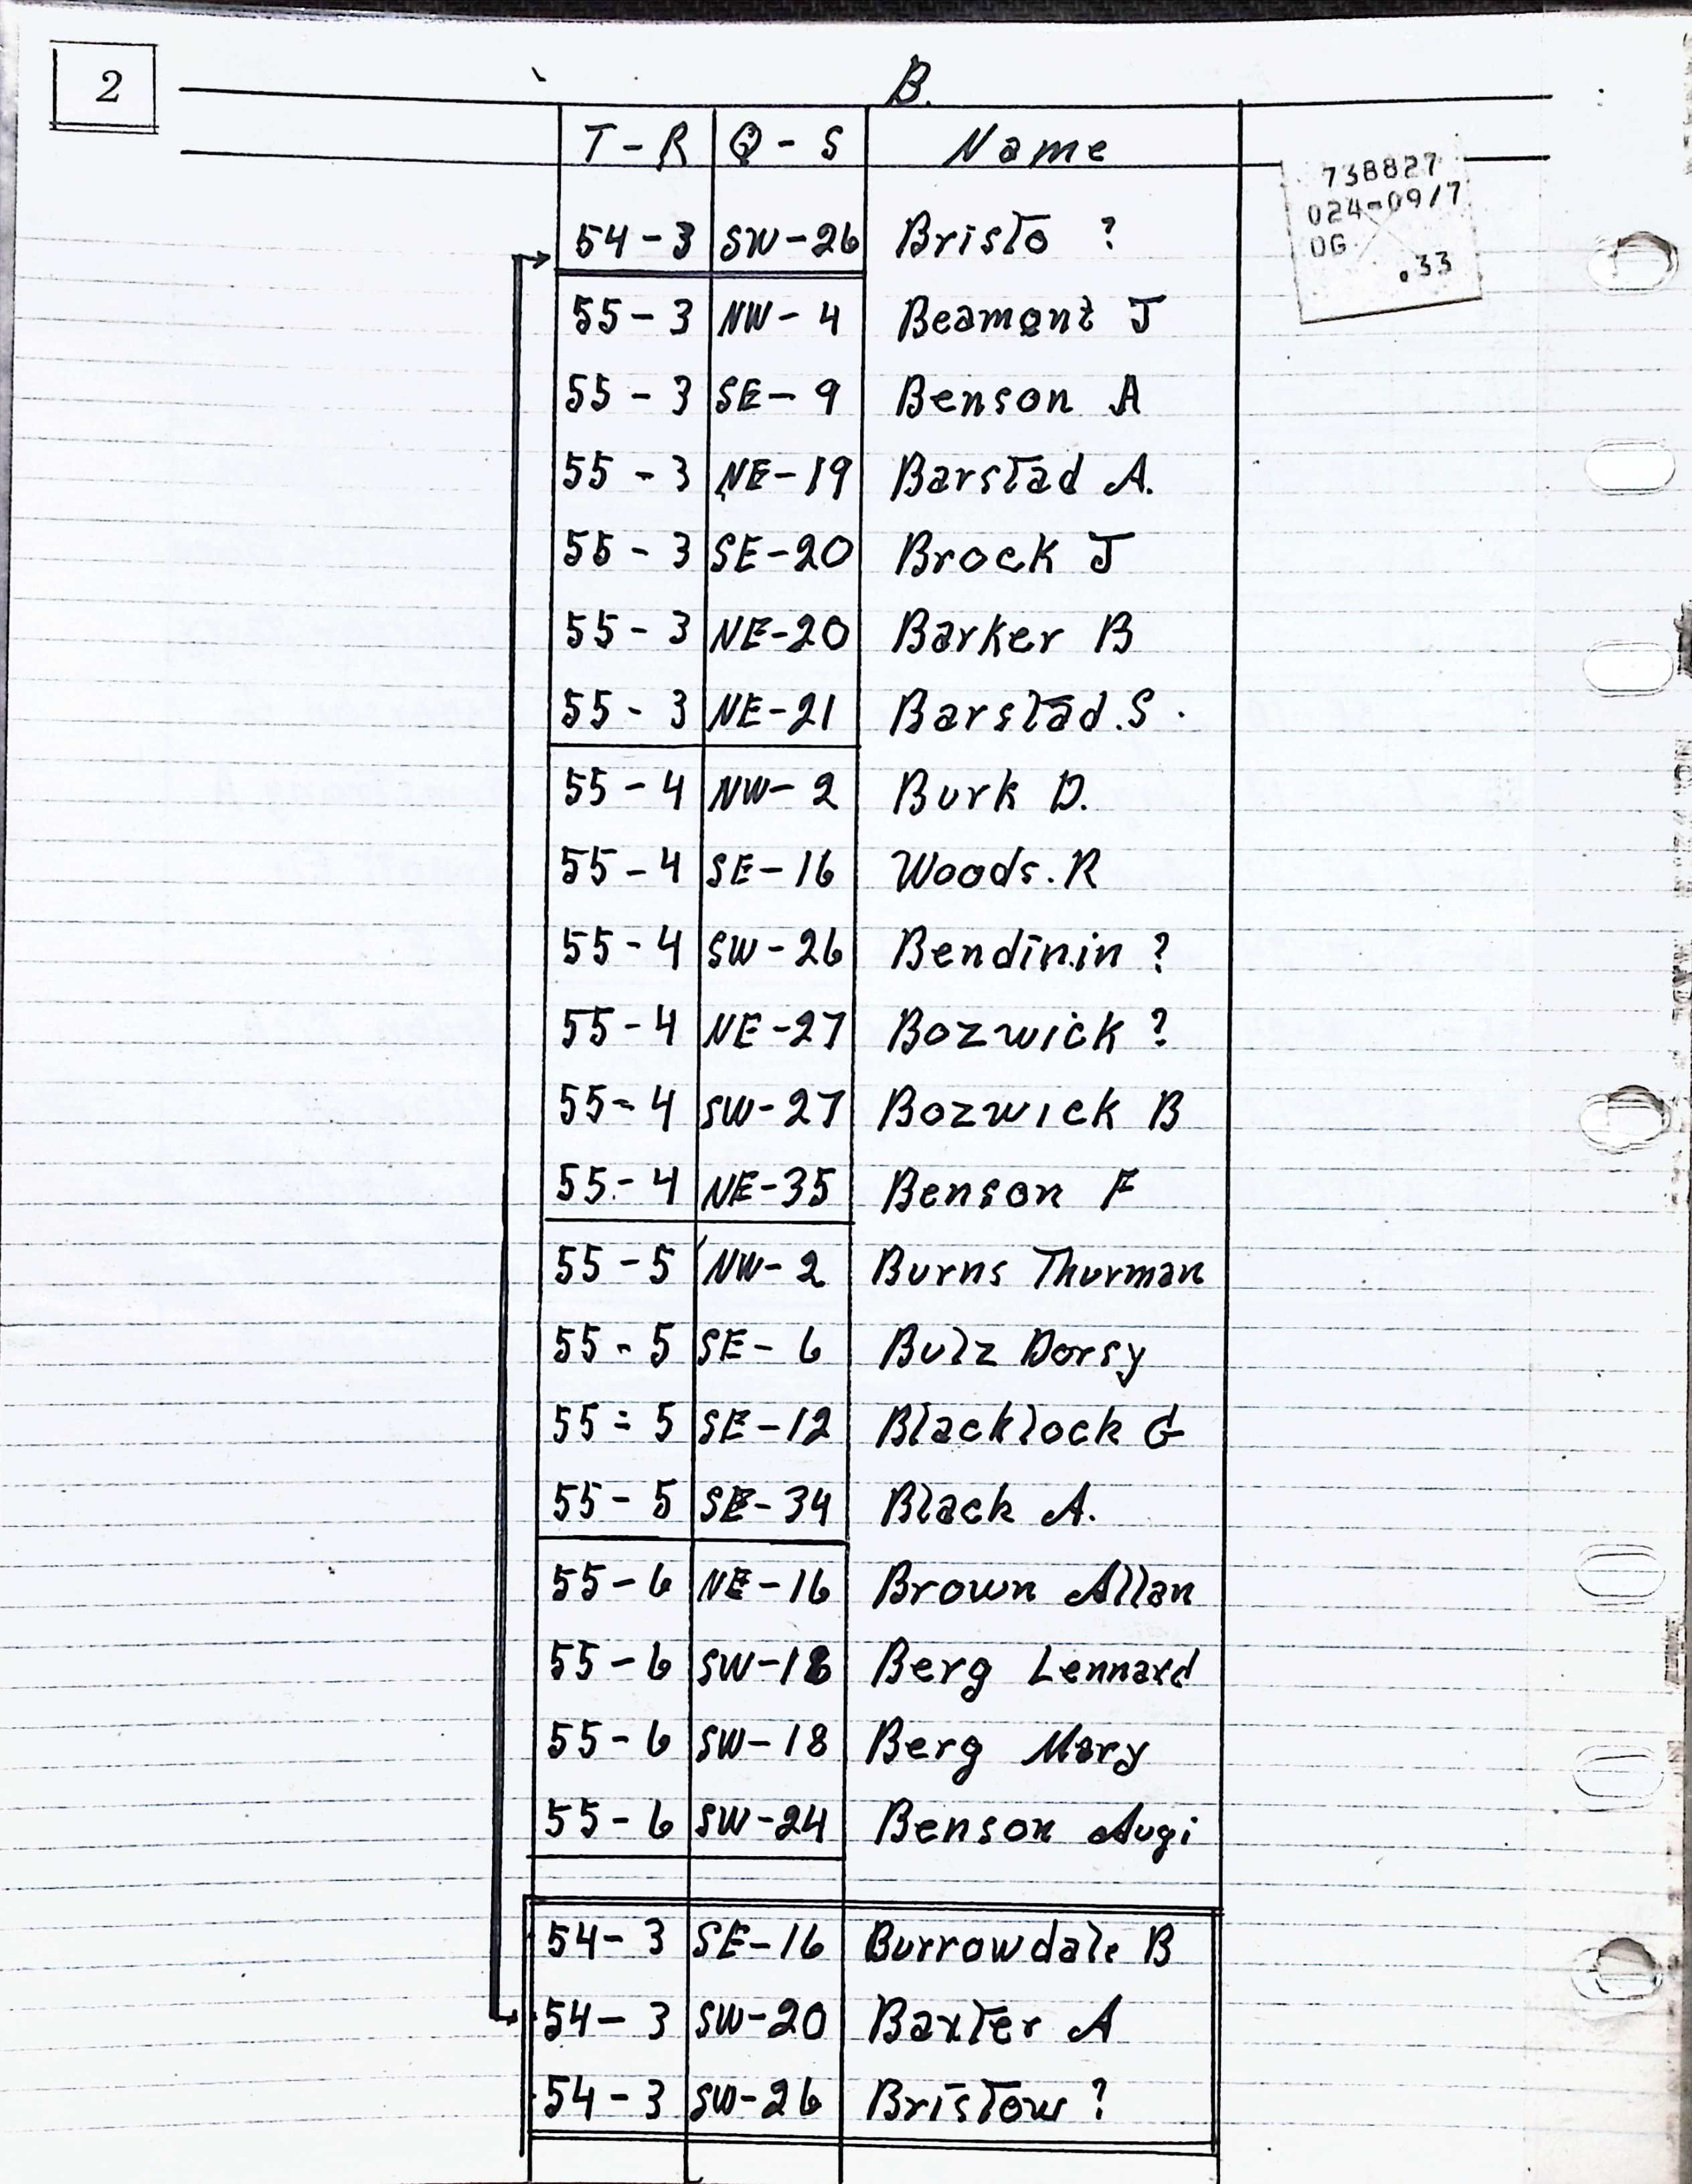 2
B.
T-R Q-S Name
738827
024-09/7
DG
.33
54-3 SW-26 Bristo ?
55-3 NW-4 Beamont J
55-3 SE-9 Benson A
55-3 NE-19 Barstad A.
55-3 SE-20 Brock J
55-3 NE-20 Barker B
55-3 NE-21 Barstad.S.
55-4 NW-2 Burk D.
55-4 SE-16 Woods.R
55-4 SW-26 Bendinin ?
55-4 NE-27 Bozwick ?
55-4 SW-27 Bozwick B
55-4 NE-35 Benson F
55-5 NW-2 Burns Thurman
55-5 SE-6 Bulz Dorsy
55=5 SE-12 Blacklock G
55-5 SE-34 Black A.
55-6 NE-16 Brown Allan
55-6 SW-18 Berg Lennard
55-6 SW-18 Berg Mary
55-6 SW-24 Benson Augi
54-3 SE-16 Burrowdale B
54-3 SW-20 Baxter A
54-3 SW-26 Bristow ?